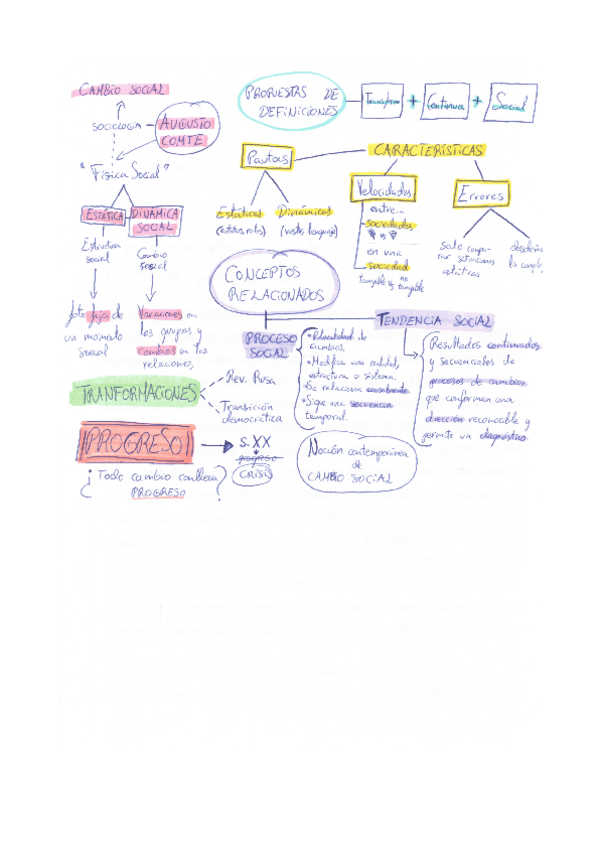 CAMBIO SOCIAL
sociología
AUGUSTO
COMTE
"Física Social"
ESTÁTICA
DINÁMICA
SOCIAL
Estructura
social
Cambio
social
foto fija de
un momento
social
Variaciones en
los grupos y
cambios en las
relaciones
PROPUESTAS DE
DEFINICIONES
+ Continua + Social
CARACTERÍSTICAS
Pautas
Estáticas
Dinámicas
Velocidades
entre...
sociedades
en una
sociedad
tangible vs no
tangible
Errores
solo
situaciones
estáticas
CONCEPTOS
RELACIONADOS
PROCESO
SOCIAL
• Pluralidad de
cambios.
• Modifica una realidad,
estructura o sistema.
Se relaciona
• Sigue una secuencia
temporal.
TENDENCIA SOCIAL
Resultados continuados
y secuenciales de
procesos de cambios
que conforman una
dirección reconocible y
permite un diagnóstico
TRANFORMACIONES
Rev. Rusa
Transición
democrática
PROGRESO
S.XX
progreso
CRISIS
¿Todo cambio conlleva
PROGRESO?
Noción contemporánea
de
CAMBIO SOCIAL